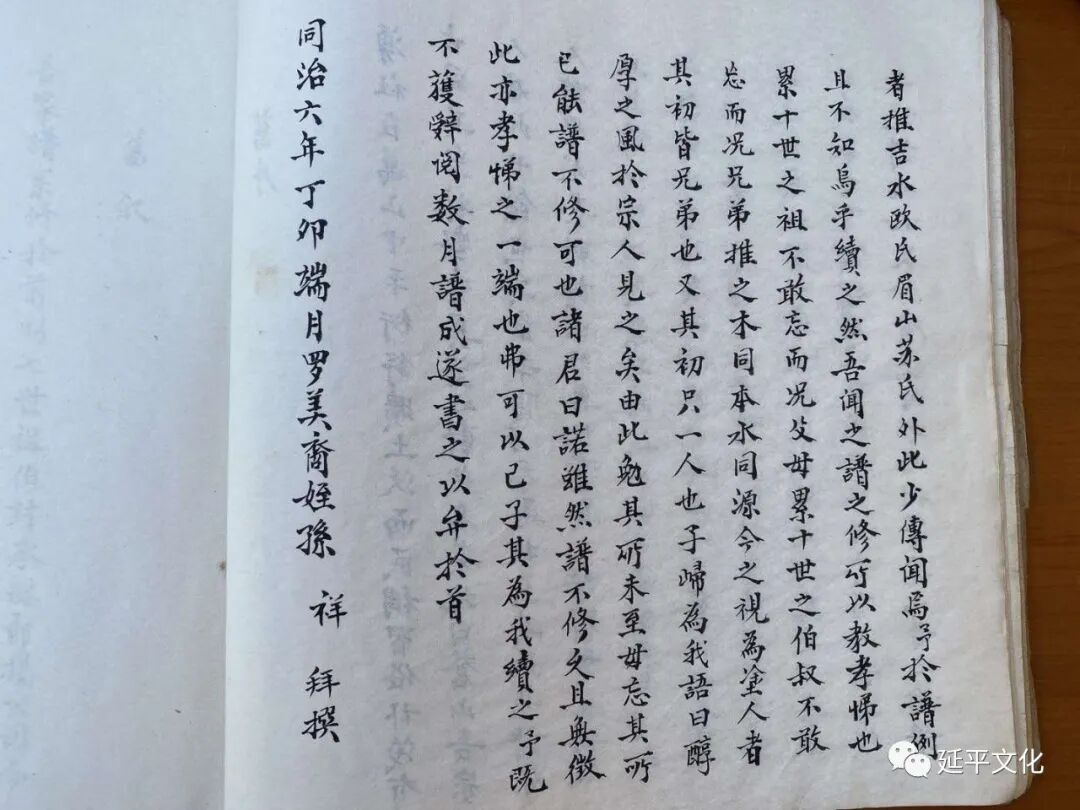 者推吉水欧氏眉山苏氏外此少傳闻焉予於譜例
且不知烏乎續之然吾闻之譜之修所以教孝悌也
累十世之祖不敢忘而况父母累十世之伯叔不敢
忘而况兄弟推之木同本水同源今之視為塗人者
其初皆兄弟也又其初只一人也子歸為我語曰醇
厚之風於宗人見之矣由此勉其所未至毋忘其所
已能譜不修可也諸君曰諾雖然譜不修久且無徵
此亦孝悌之一端也弗可以已子其為我續之予既
不獲辭阅数月譜成遂書之以弁於首
同治六年丁卯端月罗美裔姪孫 祥 拜撰
延平文化